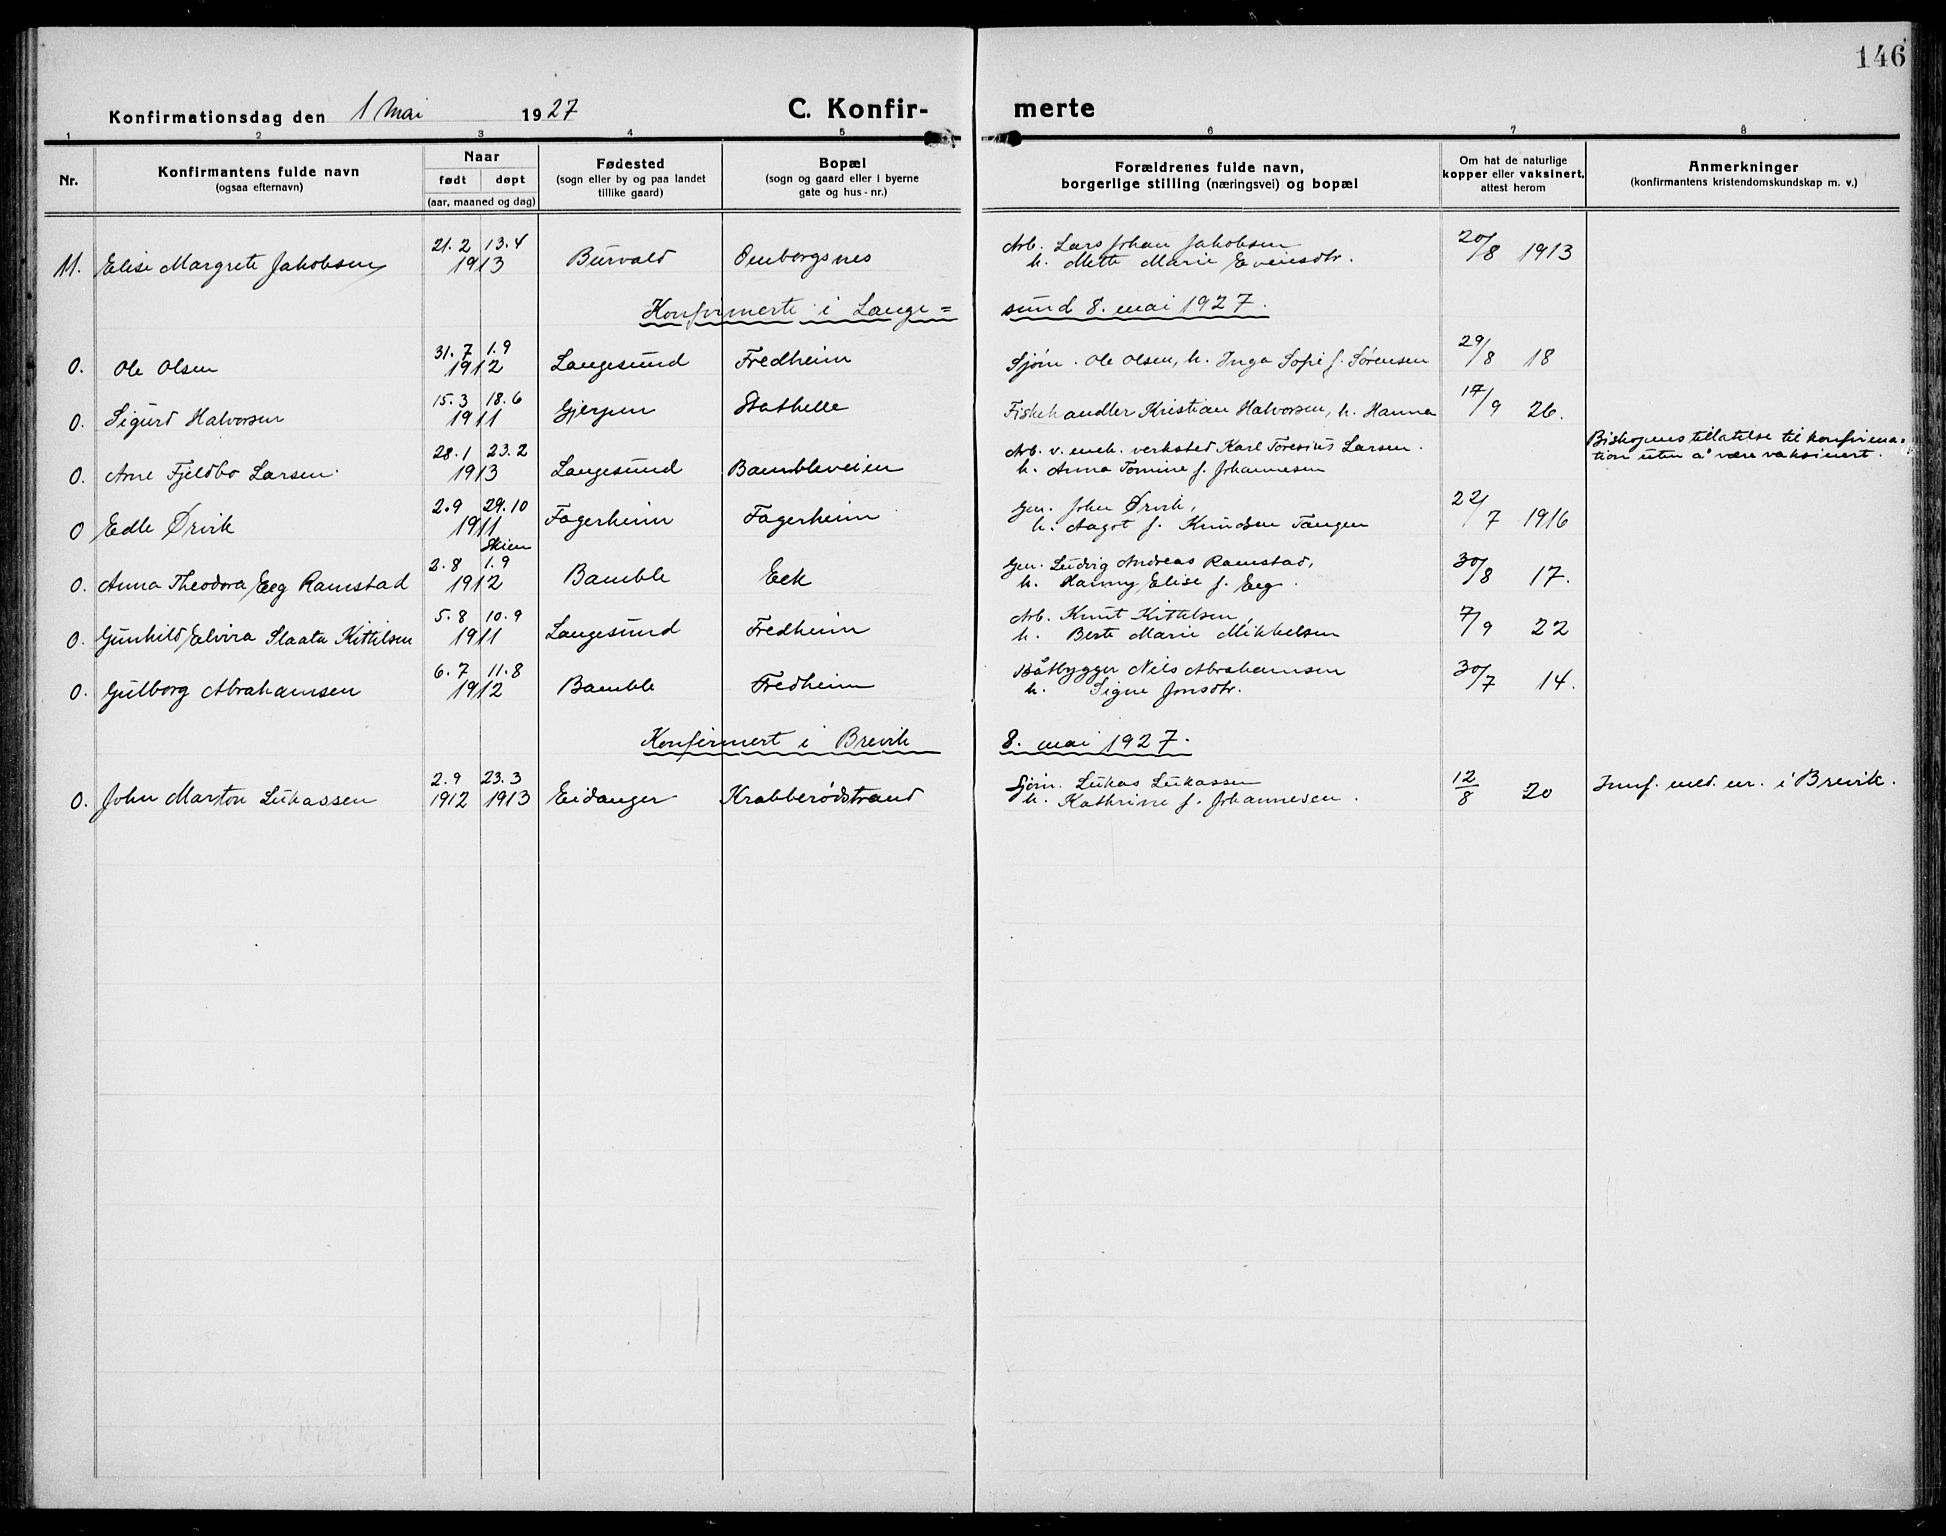 146
Konfirmationsdag den 1 Mai 1927 C. Konfir- merte
1 2 3 4 5 6 7 8
Nr. Konfirmantens fulde navn (ogsaa efternavn) Naar født døpt (aar, maaned og dag) Fødested (sogn eller by og paa landet tillike gaard) Bopæl (sogn og gaard eller i byerne gate og hus-nr.) Forældrenes fulde navn, borgerlige stilling (næringsvei) og bopæl Om hat de naturlige kopper eller vaksinert, attest herom Anmerkninger (konfirmantens kristendomskundskap m. v.)
21.2 13.4 Arb. Lars Johan Jakobsen
11. Elise Margrete Jakobsen 1913 Burvald Omborgsnes h. Mette Marie Evensdtr. 20/8 1913
Konfirmerte i Lange= sund 8. mai 1927.
31.7 1.9
0. Ole Olsen 1912 Langesund Fredheim Sjøm. Ole Olsen, h. Inga Sofie f. Sørensen 29/8 18
15.3 18.6
0. Sigurd Halvorsen 1911 Gjerpen Stathelle Fiskehandler Kristian Halvorsen, h. Hanna 17/9 26.
28.1 23.2 Arb. v. mek. verksted Karl Toresius Larsen. Biskopens tillatelse til konfirma-
0. Arne Fjeldbo Larsen. 1913 Langesund Bambleveien h. Anna Tomine f. Johannesen tion uten å være vaksinert.
2.9 29.10 Gm. John Ørvik,
0 Edle Ørvik 1911 Fagerheim Fagerheim h. Aagot f. Knudsen Tangen 22/7 1916
Skien
2.8 1.9 Gm. Ludvig Andreas Ramstad,
0. Anna Theodora Eeg Ramstad 1912 Bamble Eek h. Hanny Elise f. Eeg. 30/8 17.
5.8 10.9 Arb. Knut Kittilsen,
0. Gunhild Elvira Slaata Kittilsen 1911 Langesund Fredheim h. Berte Marie Mikkelsen 7/9 22
6.7 11.8 Båtbygger Nils Abrahamsen
0. Gulborg Abrahamsen 1912 Bamble Fredheim h. Signe Jonsdtr. 30/7 14.
Konfirmert i Brevik 8. mai 1927.
2.9 23.3 Sjøm. Lukas Lukassen
0. John Marton Lukassen 1912 1913 Eidanger Krabberødstrand h. Kathrine f. Johannesen. 12/8 20 Innf. med nr. i Brevik.